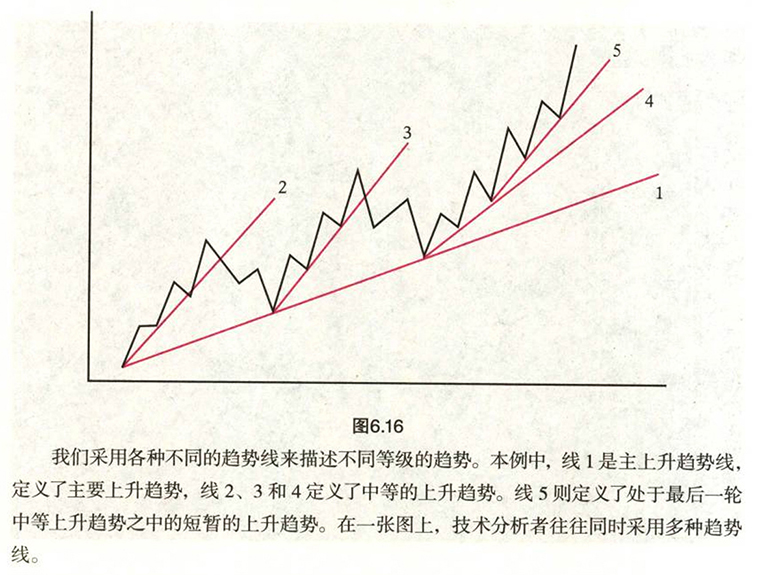 5
4
3
2
1
图6.16
我们采用各种不同的趋势线来描述不同等级的趋势。本例中，线 1 是主上升趋势线，
定义了主要上升趋势，线 2、3 和 4 定义了中等的上升趋势。线 5 则定义了处于最后一轮
中等上升趋势之中的短暂的上升趋势。在一张图上，技术分析者往往同时采用多种趋势
线。